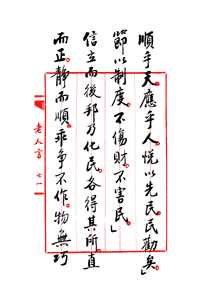 順乎天應乎人悅以先民民勸矣」
節以制度不傷財不害民」
信立而後邦乃化民各得其所直
而正靜而順乖爭不作物無巧
老人言 七一